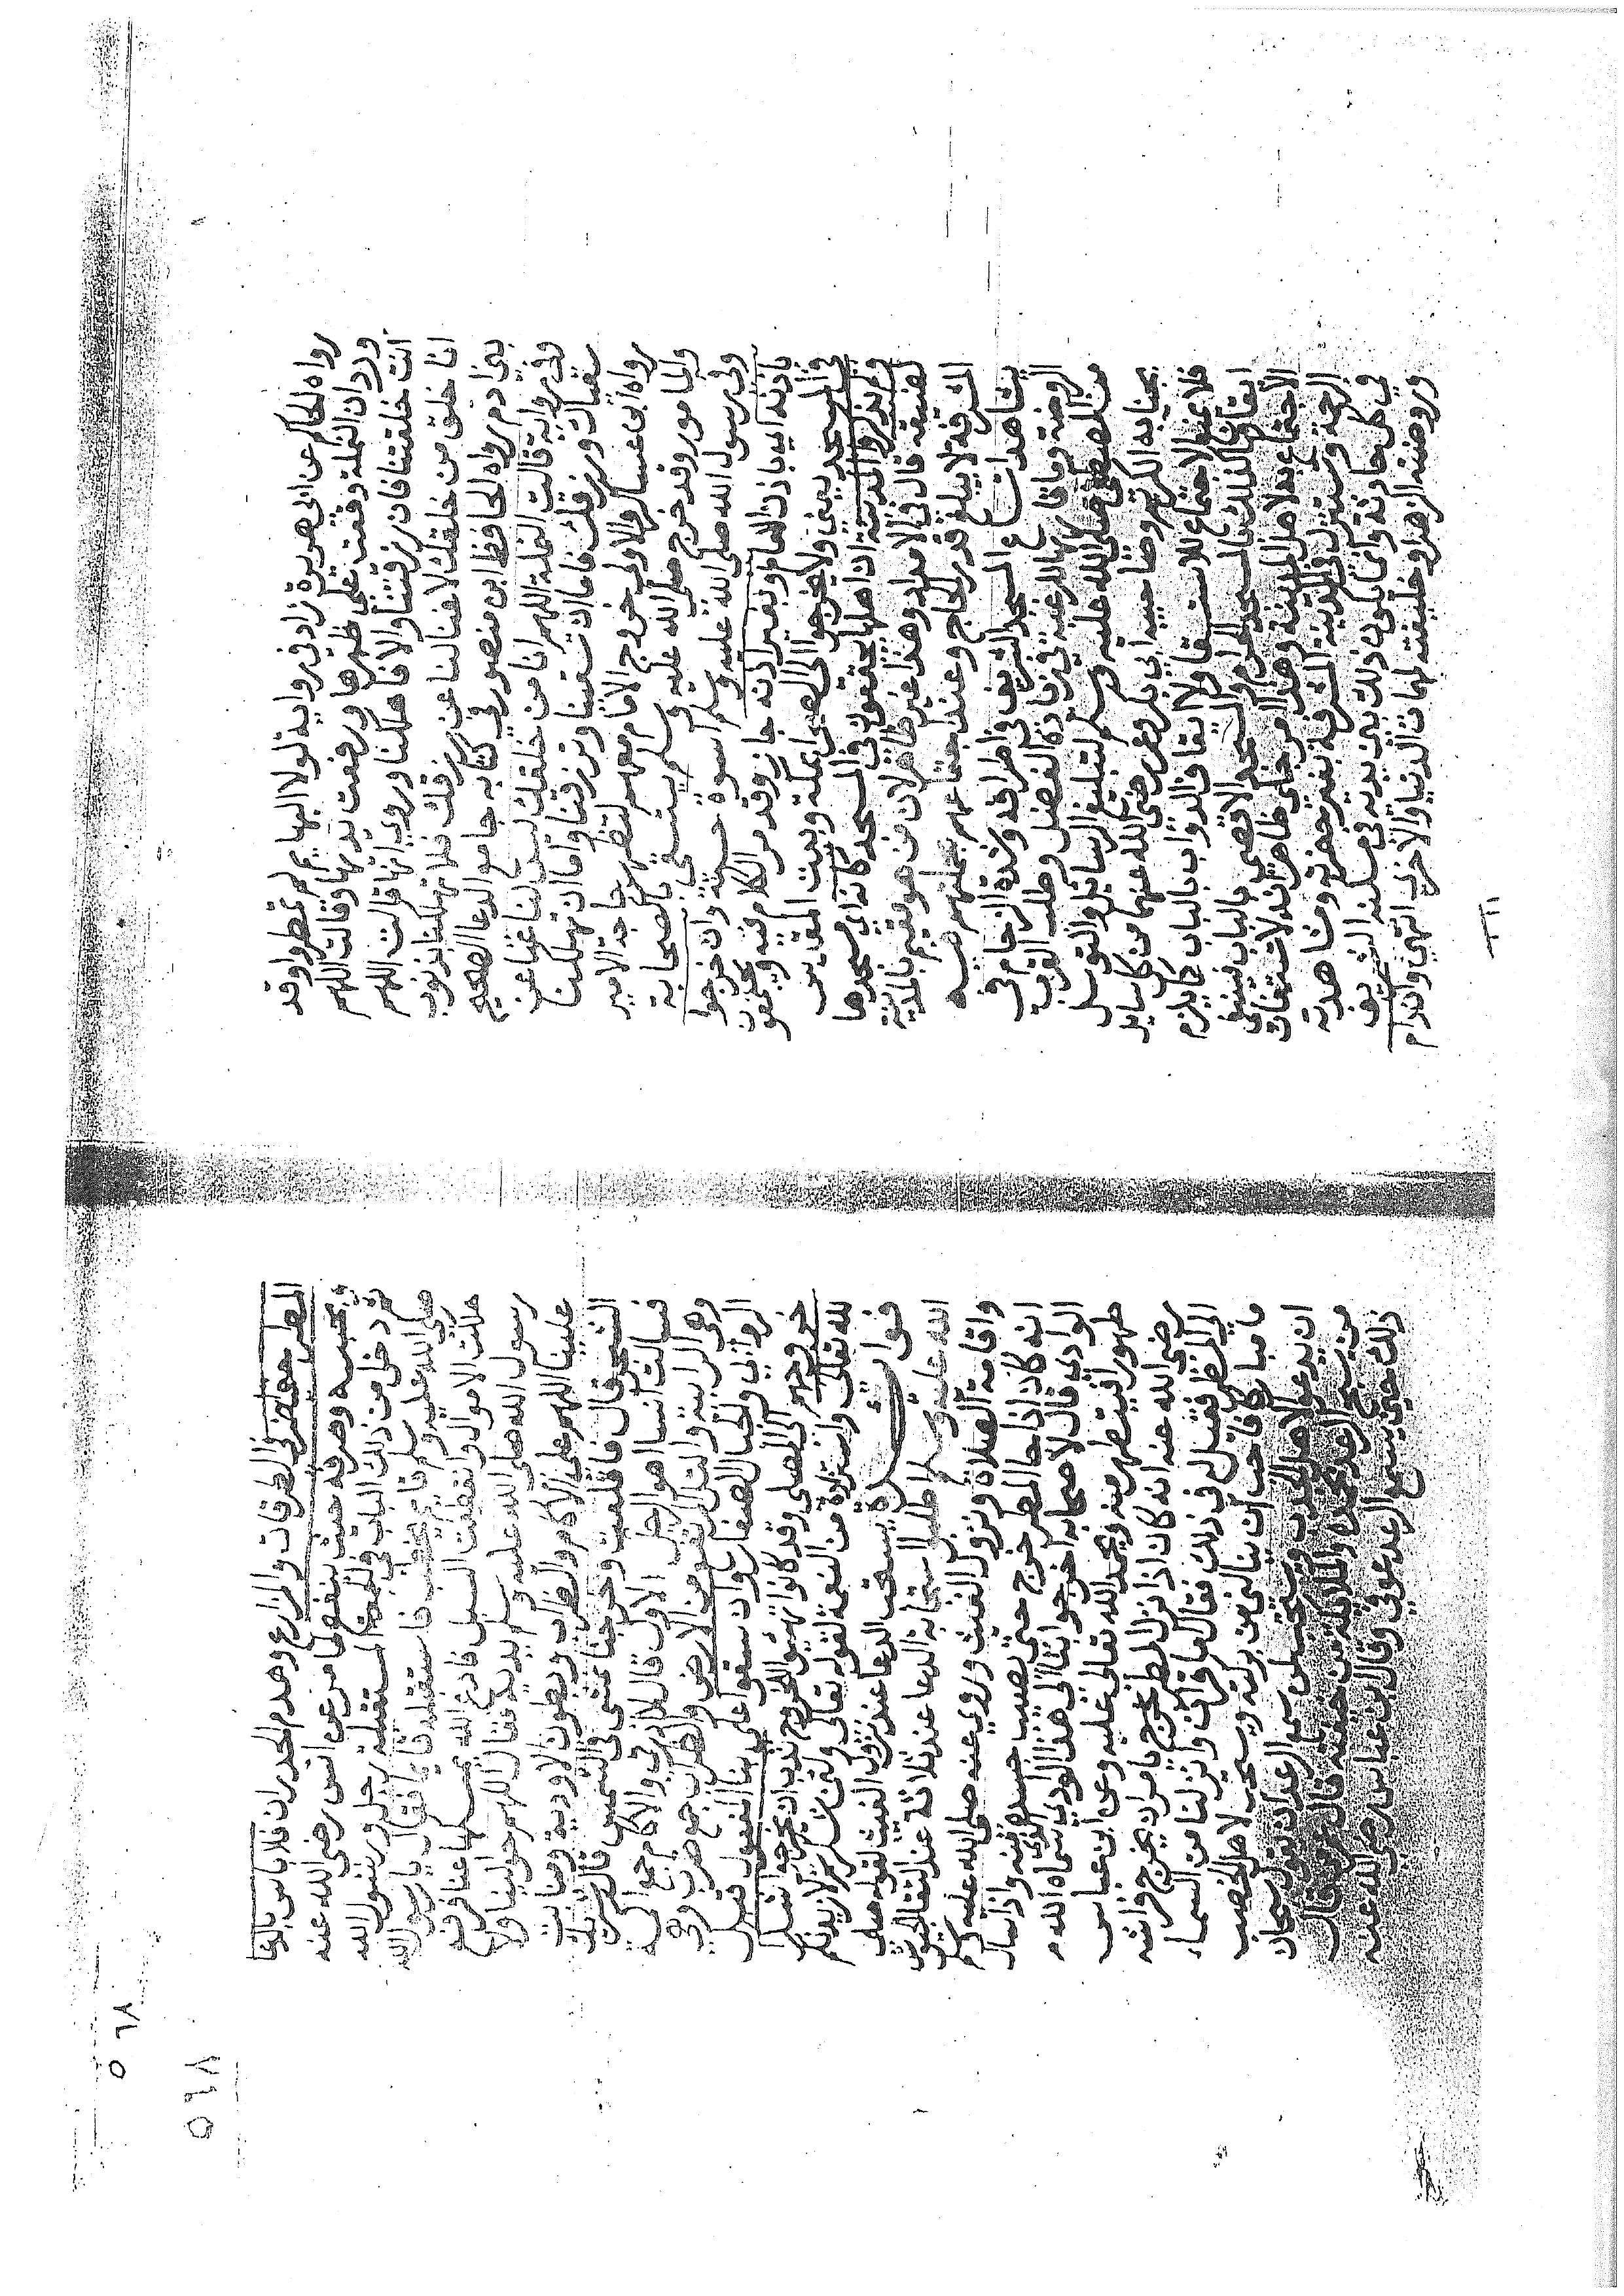 رواه الحاكم عن ابي هريرة زاد في رواية لولا البهايم لم تمطروا وقد
ورد ان النملة وقفت على ظهرها ورفعت يديها وقالت اللهم
انت خلقتنا فان رزقتنا والا فاهلكنا وروي انها قالت اللهم
انا خلق من خلقك لا غنا لنا عن رزقك فلا تهلكنا بذنوب
بني ادم رواه الحافظ ابن منصور في كتابه جامع الدعا الصحيح
وفي رواية قالت النملة اللهم انا من خلقك ليس لنا غنا عن
سقياك ورزقك فاما ان تسقينا وترزقنا واما ان تهلكنا
رواه ابن عساكر والاولى خروج الامام معهم لتظهر حاجة الامير
والمامور وقد خرج صلى الله عليه وسلم يستسقي بالصحابة
وفي رسول الله صلى الله عليه وسلم اسوة حسنة وان خرجوا
باذنه اي باذن الامام او بغير اذنه جاز وقد مر الكلام فيه ويجتمعون
في المسجد يعني ولا يخرجوا الى الصحرا بمكة وبيت المقدس
ولم يذكروا المدينة اذ اهلها يجتمعون في المسجد كانه اي مسجدها
لضيقه قال في الامداد وهذا غير ظاهر لان من هو مقيم بالمدينة
المشرفة لا يبلغ قدر الحاج وعند اجتماعهم بجملتهم فيه
يشاهد اتساع المسجد الشريف في اطرافه وشدة الزحام في
الروضة وما قاربها للرغبة في زيادة الفضل وطلب القرب
من المصطفى صلى الله عليه وسلم لتبليغ الرسائل والتوسل
بجنابه الكريم وصاحبيه ابي بكر وعمر رضي الله عنهما من كل سايد
فلا يمنع الاجتماع للاستسقا ولا ايقاف الدواب بالباب كما يلزم
ايقافها كذلك بالمسجد الحرام والمسجد الاقصى بالباب فينبغي
الاجتماع به لاهل المدينة وهذا امر جلي ظاهر اذ لا تستغاث
الرحمة وتستنزل في المدينة المشرفة بغير حضرته ومشاهدته
في كل حادثة وانما يكون ذلك بين يديه في مسجده الشريف
وروضته الزهرا وخليفته لهمات الدنيا والاخرى انتهى وان دام
المطر حتى اضر في الطرقات والمزارع وهدم الجدران فلا باس بالدعا
بحبسه وصرفه حيث ينفع لما مر عن انس رضي الله عنه
ثم دخل من ذلك الباب في الجمعة المستقبلة رجل ورسول الله
صلى الله عليه وسلم قايم يخطب فاستقبله قايما فقال يا رسول الله
هلكت الاموال وانقطعت السبل فادع الله يمسكها عنا فرفع
رسول الله صلى الله عليه وسلم يديه فقال اللهم حوالينا ولا
علينا اللهم على الاكام والظراب وبطون الاودية ومنابت
الشجر قال فاقلعت وخرجنا نمشي في الشمس قال شريك
فسالت انسا اهو الرجل الاول قال لا ادري والاكام جمع اكمة
وهي الرابية والتل المرتفع من الارض والظراب جمع ظرب وهي
الروابي والجبال الصغار وان سقوا على بنا المفعول قبل
خروجهم الى المصلى وقد كانوا تهيؤا للخروج ندب ان يخرجوا شكرا
لله تعالى واستزادة من النعمة لقوله تعالى ولئن شكرتم لازيدنكم
فوايد يستحب الدعا عند نزول الغيث لقوله صلى
الله عليه وسلم اطلبوا استجابة الدعا عند ثلاثة عند التقا الجيوش
واقامة الصلاة ونزول الغيث وروي عنه صلى الله عليه وسلم
انه كان اذا جا المطر خرج حتى يصيب جسده منه واذا سال
الوادي قال لاصحابه اخرجوا بنا الى هذا الوادي سماه الله
طهورا فيتطهر منه ويحمد الله تعالى عليه وعن ابن عباس
رضي الله عنه انه كان اذا نزل المطر يخرج يامر ان يخرج فراشه
الى المطر فقيل له في ذلك فقال اما قرات وانزلنا من السماء
ماء مباركا فاحب ان ينالني من بركته ويستحب لاهل الخصب
ان يدعوا لاهل الجدب ويستحب لمن سمع الرعد ان يقول سبحان
من يسبح الرعد بحمده والملائكة من خيفته قال
ذلك حين يسمع الرعد عوفي وقال ابن عباس رضي الله عنه
٥٦٨
٥٦٨